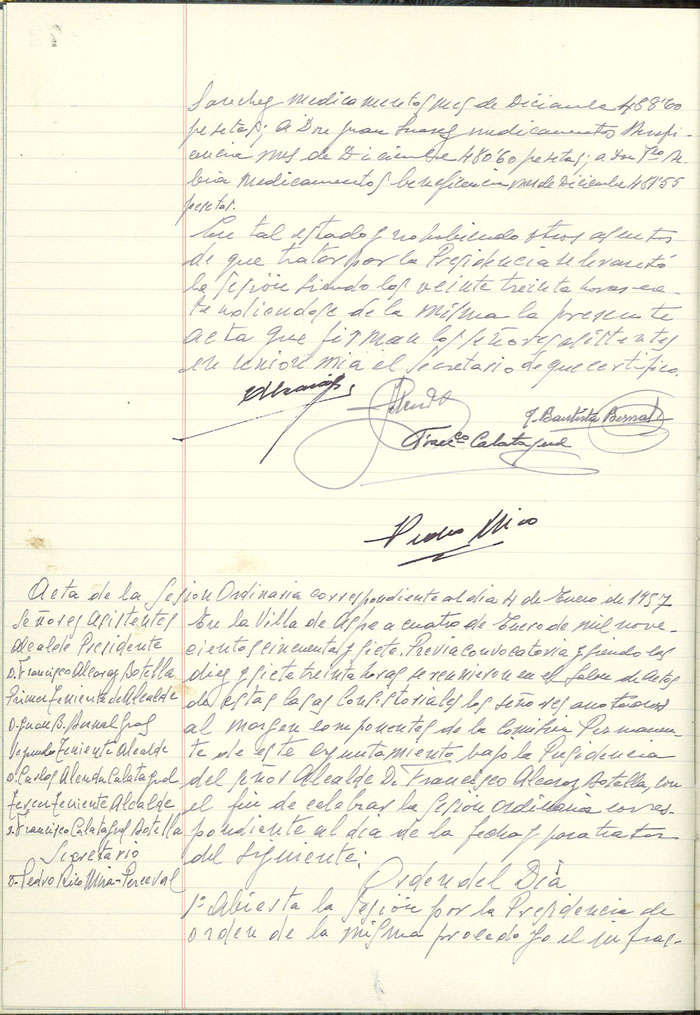 Sanchez medicamentos mes de Diciembre 488'60
pesetas; a Don Juan Suarez medicamentos Benefi-
ciencia mes de Diciembre 480'60 pesetas; a Don
medicamentos beneficencia mes de Diciembre 481'55
pesetas.
En tal estado y no habiendo otros asuntos
de que tratar por la Presidencia se levantó
la Sesión siendo las veinte treinta horas ex-
tendiendose de la misma la presente
acta que firman los señores asistentes
en union mia el Secretario de que certifico.
J. Bautista Bernal
Franco Calatayud
Pedro Rico
Acta de la Sesion Ordinaria correspondiente al dia 4 de Enero de 1957
Señores Asistentes
Alcalde Presidente
D. Francisco Alcaraz Botella
Primer Teniente de Alcalde
D. Juan B. Bernal Gras
Segundo Teniente Alcalde
D. Carlos Alenda Calatayud
Tercer Teniente Alcalde
D. Francisco Calatayud Botella
Secretario
D. Pedro Rico Mira-Perceval
En la Villa de Aspe a cuatro de Enero de mil nove-
cientos cincuenta y siete. Previa convocatoria y siendo las
diez y siete treinta horas se reunieron en el Salon de actos
de estas Casas Consistoriales los señores anotados
al margen componentes de la Comision Permanen-
te de este Ayuntamiento bajo la Presidencia
del señor Alcalde D. Francisco Alcaraz Botella, con
el fin de celebrar la Sesion Ordinaria corres-
pondiente al dia de la fecha y para tratar
del siguiente:
Orden del Dia
1º Abierta la Sesión por la Presidencia de
orden de la misma procedo yo el infras-